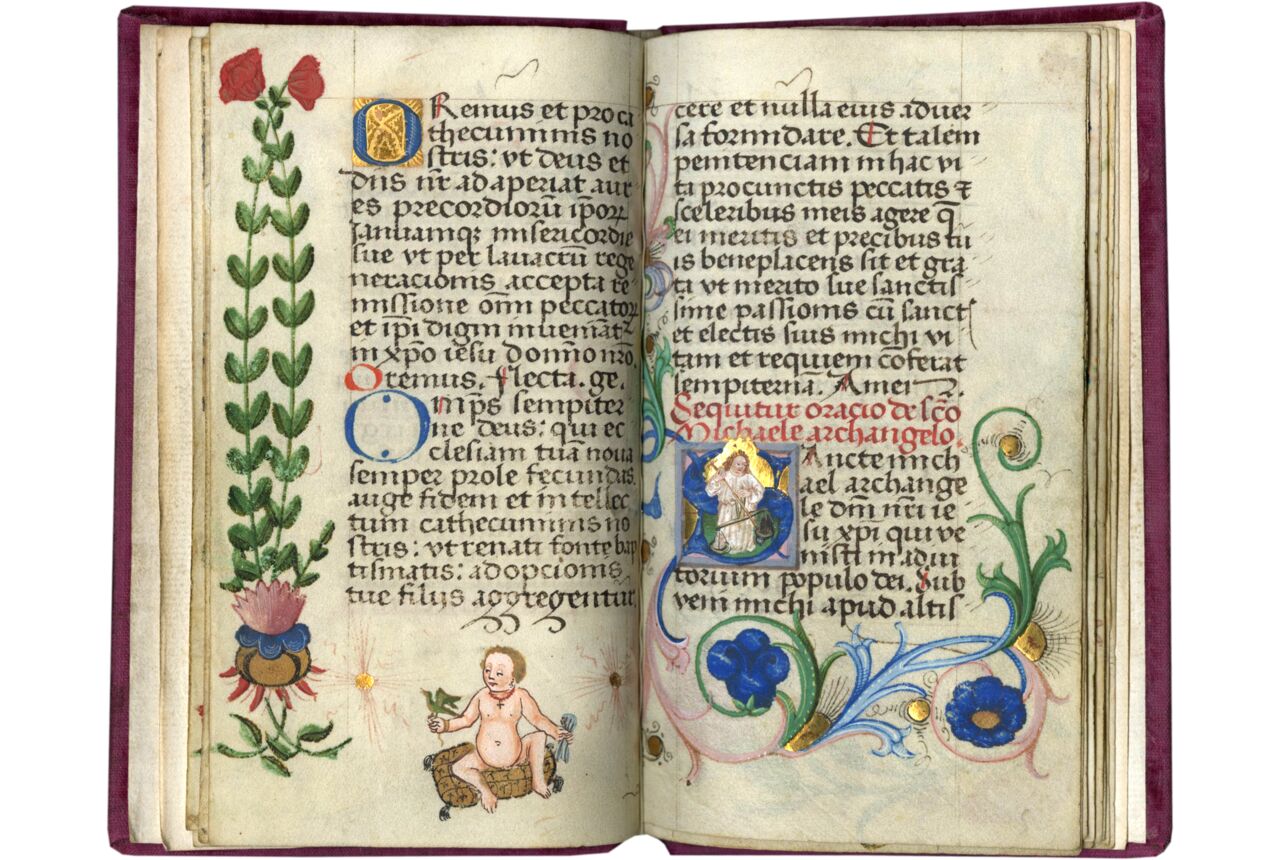 Oremus et pro ca
thecuminis no
stris: vt deus et
dns nr adaperiat aur
es precordiorū ip̄oꝝ
Ianuamqꝫ misericordie
sue vt per lauacrū rege
neracionis accepta re
missione om̄i peccatoꝝ
et ip̄i digni inueniāt᷑
in xp̄o iesu domi̅o nr̅o.
Oremus. flecta. ge.
Om̅ps sempiter
ne deus: qui ec
clesiam tuā noua
semper prole fecundas.
auge fidem et intellec
tum cathecuminis no
stris: vt renati fonte bap
tismatis: adopcionis
tue filijs aggregentur
cere et nulla eius aduer
sa formidare. Et talem
penitenciam in hac vi
ta pro cunctis peccatis ⁊
sceleribus meis agere q̄
ei meritis et precibus tu
is beneplacens sit et gra
ta vt merito sue sanctis
sime passionis cū sanct
et electis suis michi vi
tam et requiem cōferat
sempiternā. Amen.
Sequitur oracio de sc̄o
Michaele archangelo.
Sancte mich
ael archange
le dn̄i nr̄i ie
su xp̄i qui ve
nisti in adiu
torium populo dei. Sub
veni michi apud altis